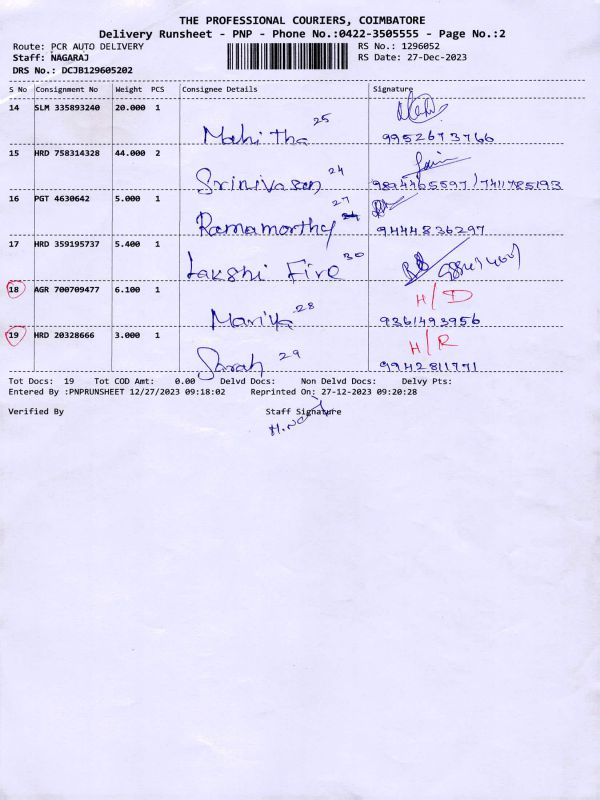 THE PROFESSIONAL COURIERS, COIMBATORE
Delivery Runsheet - PNP - Phone No.:0422-3505555 - Page No.:2
Route: PCR AUTO DELIVERY RS No.: 1296052
Staff: NAGARAJ RS Date: 27-Dec-2023
DRS No.: DCJB129605202
S No Consignment No Weight PCS Consignee Details Signature
14 SLM 335893240 20.000 1
Mahitha 25 9952673766
15 HRD 758314328 44.000 2
Srinivasan 24 9894465597/7411785193
16 PGT 4630642 5.000 1
Ramamorthy 27 9444836297
17 HRD 359195737 5.400 1
Lakshi Fire 30
18 AGR 700709477 6.100 1 H/D
Mariya 28 9361493956
19 HRD 20328666 3.000 1 H/R
Sarah 29 9942811771
Tot Docs: 19 Tot COD Amt: 0.00 Delvd Docs: Non Delvd Docs: Delvy Pts:
Entered By :PNPRUNSHEET 12/27/2023 09:18:02 Reprinted On: 27-12-2023 09:20:28
Verified By Staff Signature